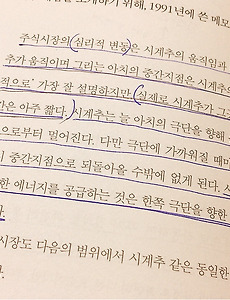 소개하기 위해, 1991년에 쓴 메모
주식시장의 심리적 변동은 시계추의 움직임과
추가 움직이며 그리는 아치의 중간지점은 시계추의
적으로' 가장 잘 설명하지만 실제로 시계추가 그
간은 아주 짧다. 시계추는 늘 아치의 극단을 향해
으로부터 멀어진다. 다만 극단에 가까워질 때마
중간지점으로 되돌아올 수밖에 없게 된다. 사
한 에너지를 공급하는 것은 한쪽 극단을 향한
다.
시장도 다음의 범위에서 시계추 같은 동일한